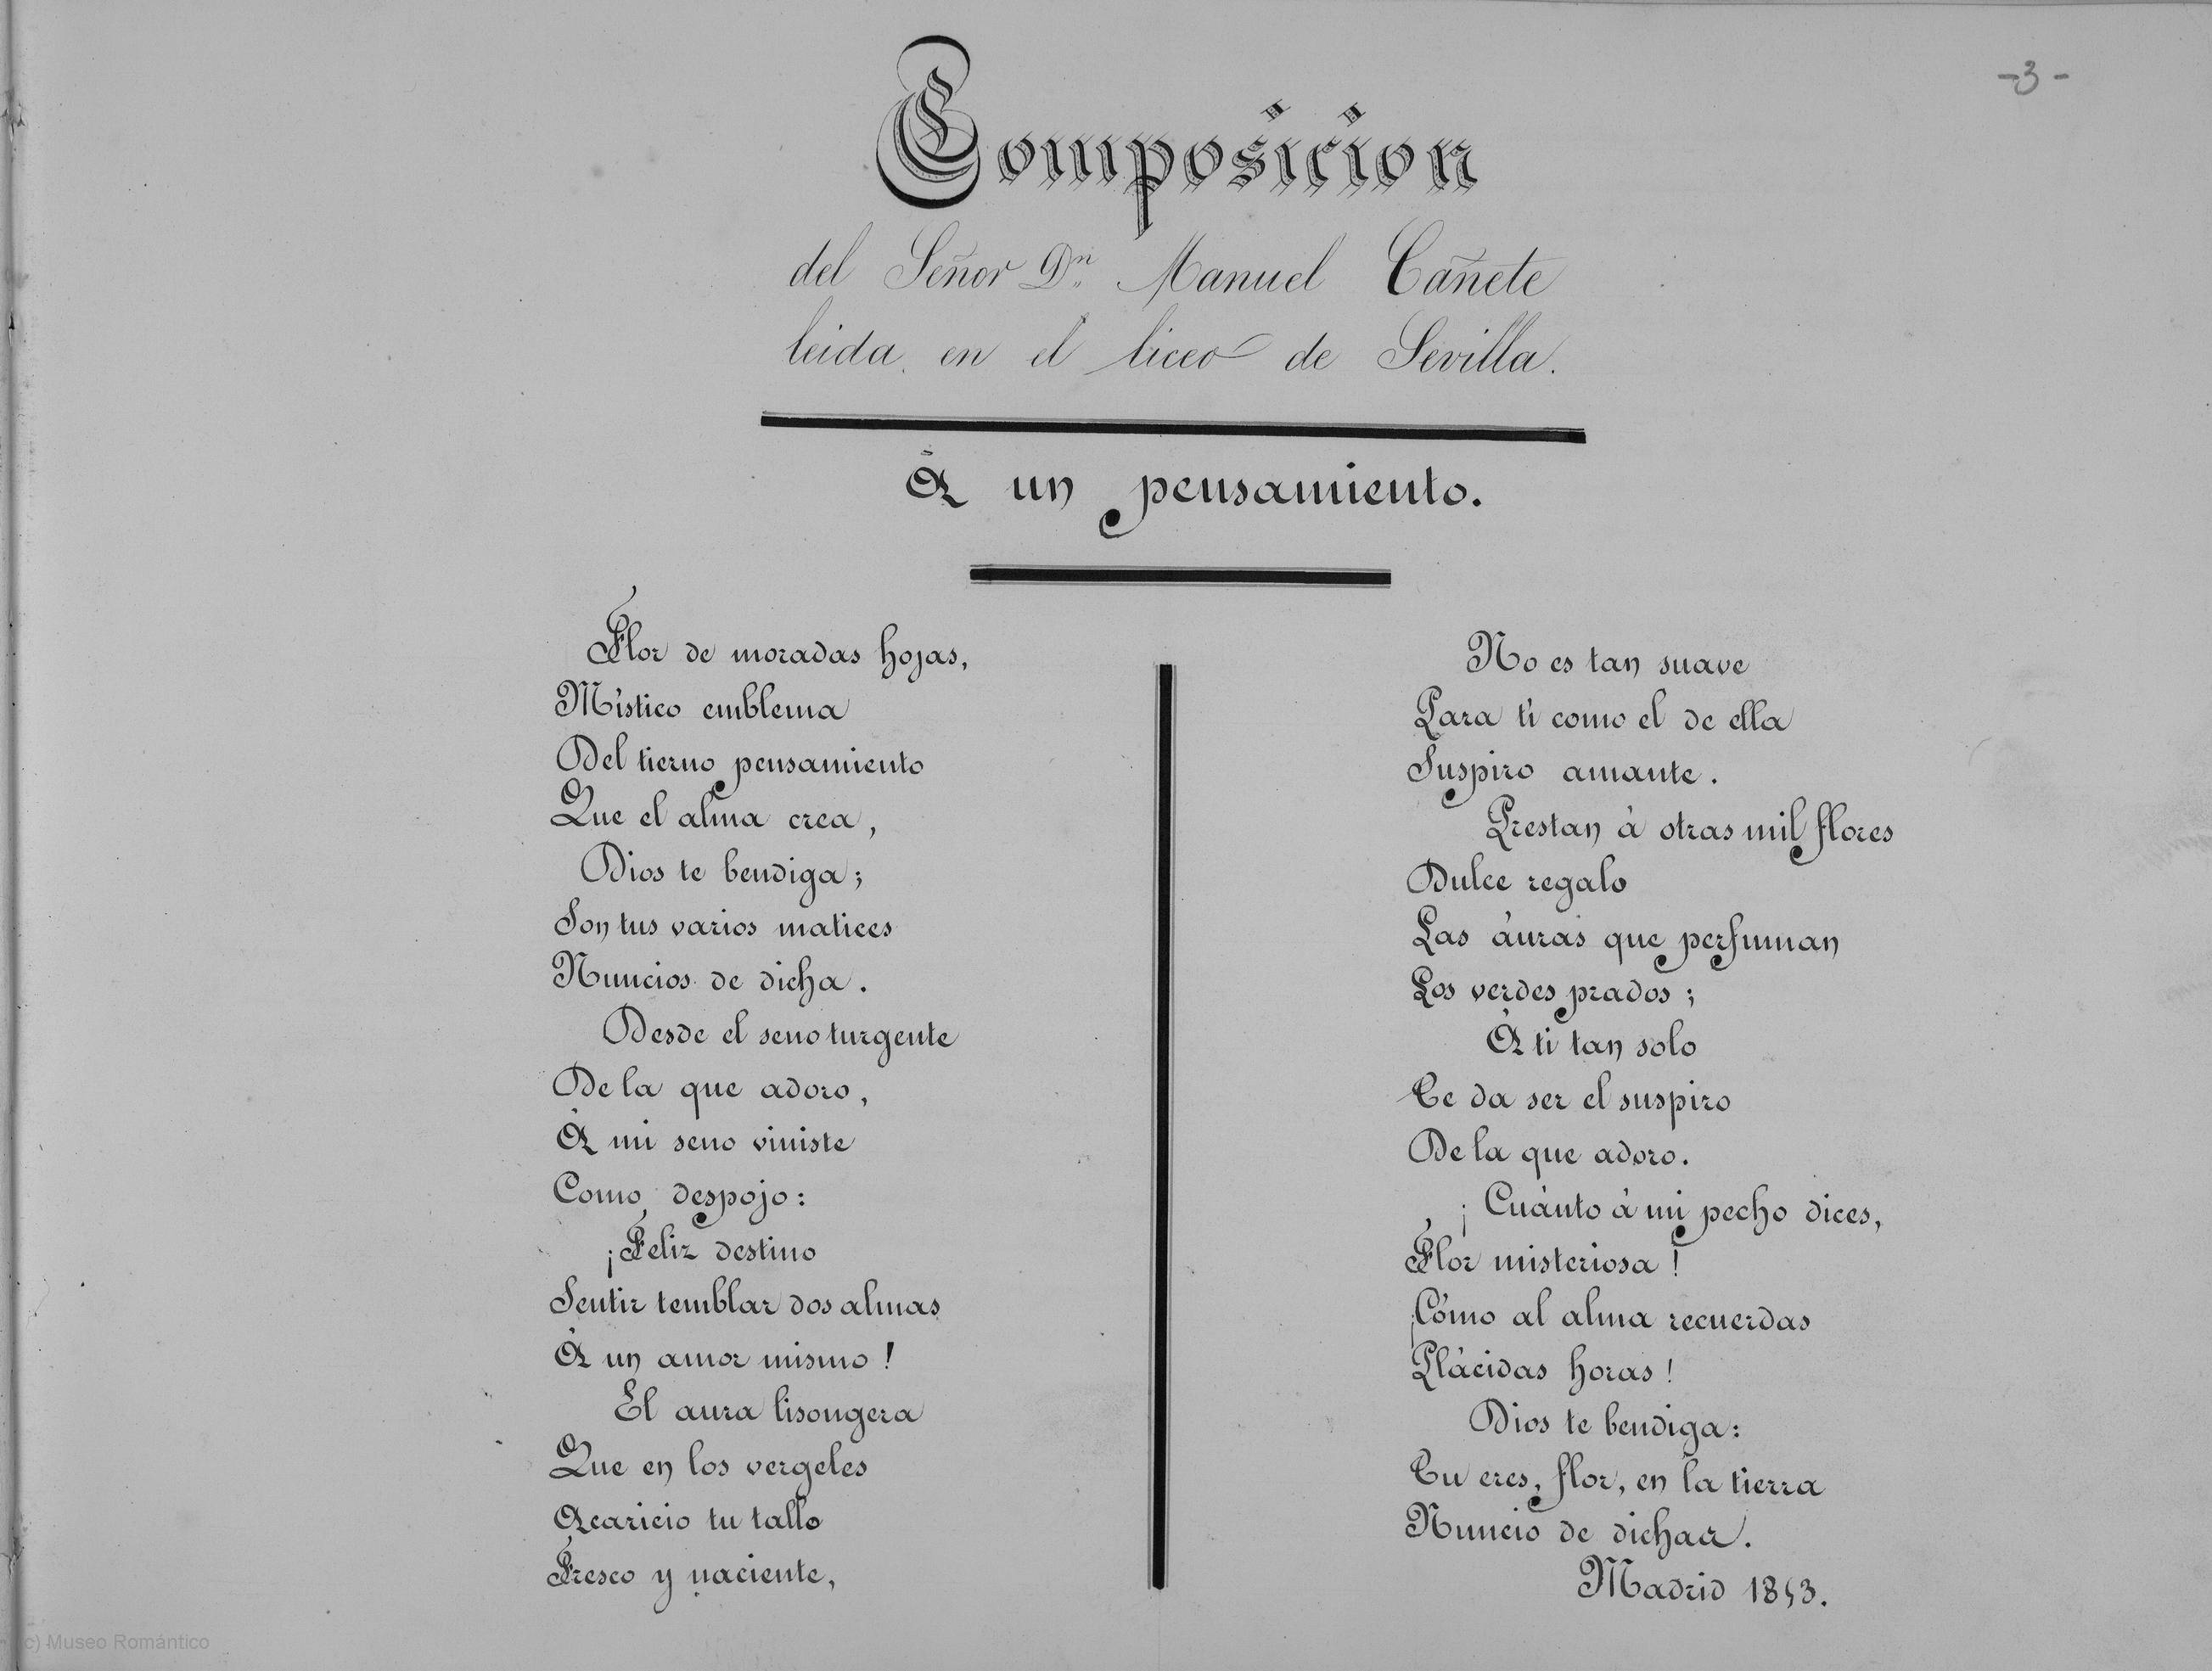 -3-
Composicion
del Señor Dn. Manuel Cañete
leida en el liceo de Sevilla.
Á un pensamiento.
Flor de moradas hojas,
Místico emblema
Del tierno pensamiento
Que el alma crea,
Dios te bendiga;
Son tus varios matices
Nuncios de dicha.
Desde el seno turgente
De la que adoro,
Á mi seno viniste
Como despojo:
¡Feliz destino
Sentir temblar dos almas
Á un amor mismo!
El aura lisongera
Que en los vergeles
Acaricio tu tallo
Fresco y naciente,
No es tan suave
Para tí como el de ella
Suspiro amante.
Prestan á otras mil flores
Dulce regalo
Las áuras que perfuman
Los verdes prados;
Á ti tan solo
Te da ser el suspiro
De la que adoro.
¡Cuánto á mi pecho dices,
Flor misteriosa!
¡Cómo al alma recuerdas
Plácidas horas!
Dios te bendiga:
Tu eres, flor, en la tierra
Nuncio de dichaa.
Madrid 1853.
(c) Museo Romántico